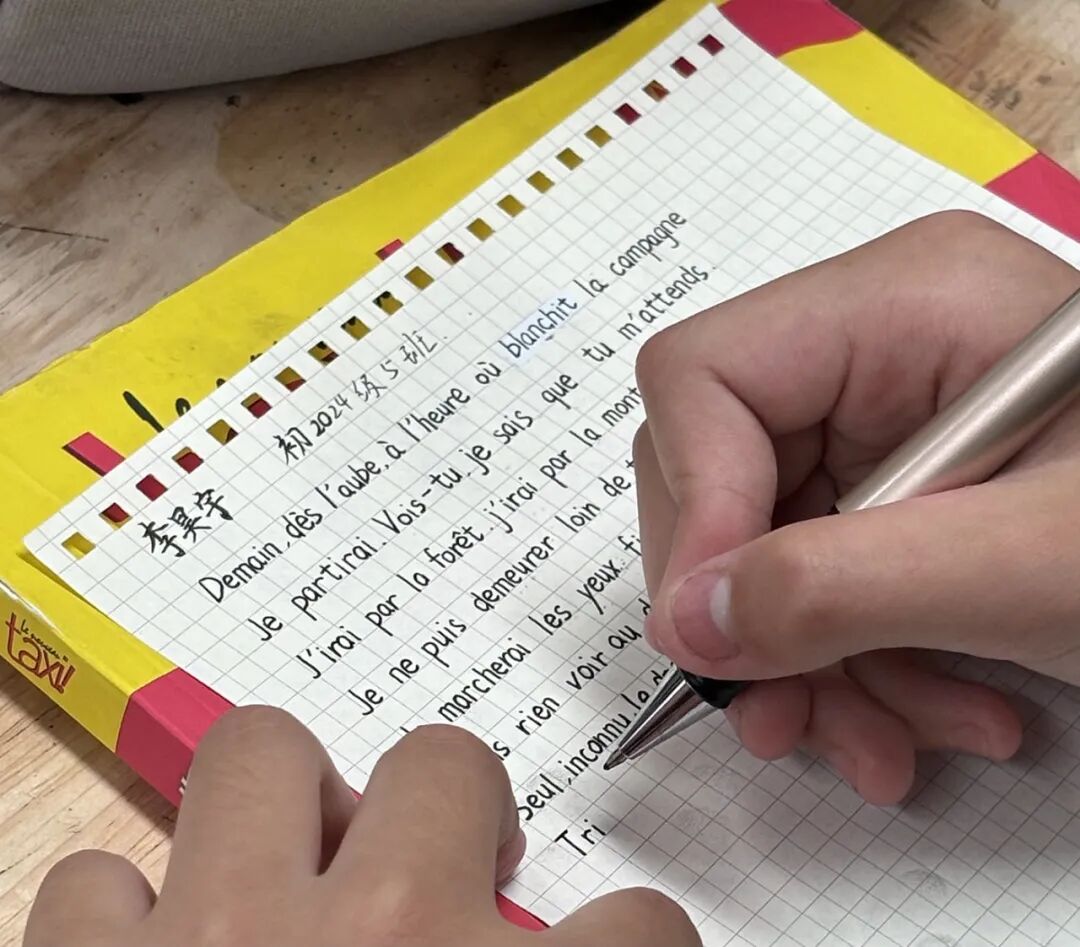 初2024级5班
李昊宇
Demain, dès l'aube, à l'heure où blanchit la campagne
Je partirai. Vois-tu, je sais que tu m'attends.
J'irai par la forêt, j'irai par la mont
Je ne puis demeurer loin de t
marcherai les yeux fi
s rien voir au d
Seul, inconnu, le d
Tri
le nouveau taxi!